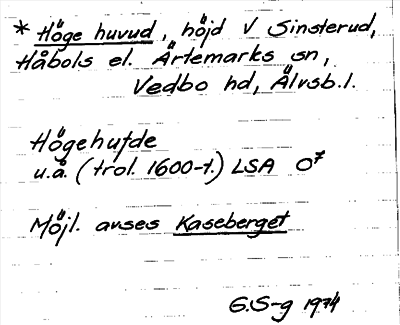 * Höge huvud, höjd V Sinsterud,
Håbols el. Ärtemarks sn,
Vedbo hd, Älvsb.l.
Högehufde
u.å. (trol. 1600-t.) LSA O7
Möjl. avses Kaseberget
G.S-g 1974